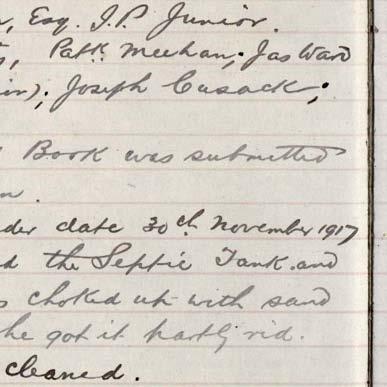 , Esq. J.P. Junior.
, Patk. Meehan; Jas Ward
); Joseph Cusack;
Book was submitted
n.
der date 30th November 1917
d the Septic Tank and
s choked up with sand
he got it partly rid.
cleaned.